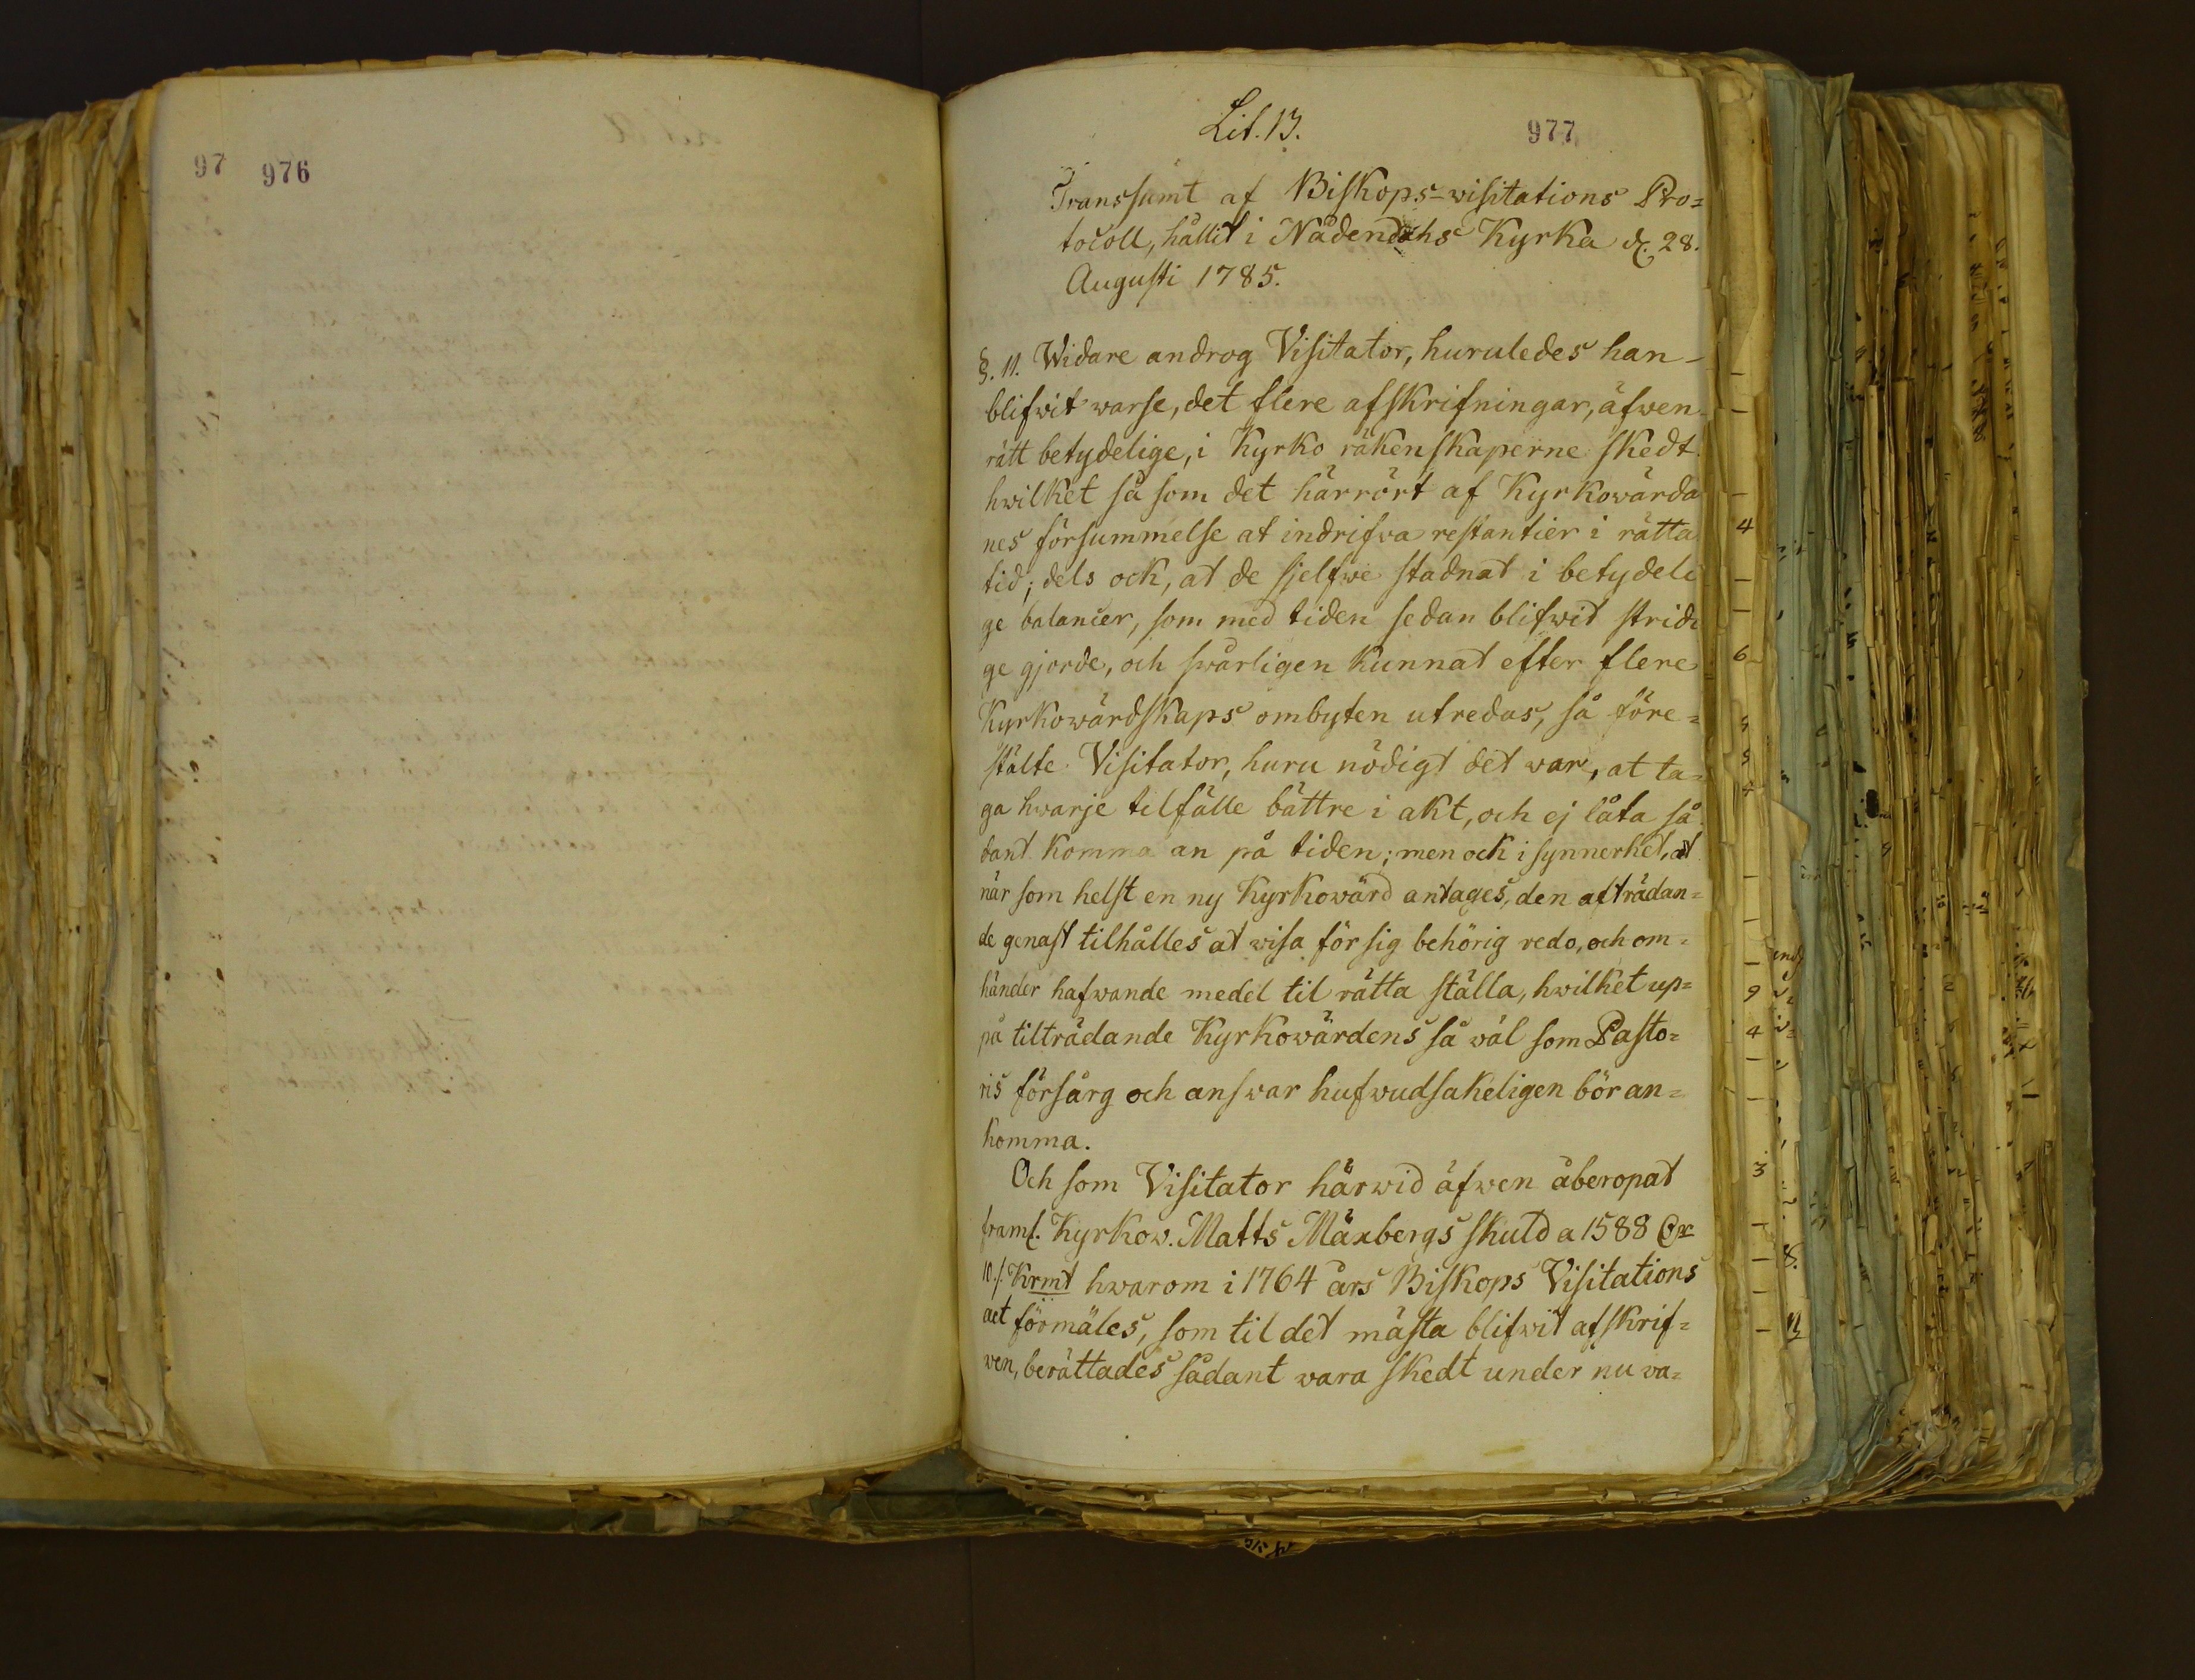 97 976
Lit. B.
977
Transsumt af Biskops-wisitations Pro=
tocoll, hållit i Nådendahls Kyrka d. 28.
Augusti 1785.
§. 11. Widare androg Visitator, huruledes han
blifwit warse, det flere afskrifningar, äfwen
rätt betydelige, i Kyrko räkenskaperne skedt
hwilket så som det härrört af Kyrkowärda
nes försummelse at indrifwa restantier i rätta
tid; dels ock, at de sjelfwe stadnat i betydeli
ge balancer, som med tiden sedan blifwit stridi
ge gjorde, och swårligen kunnat efter flere
Kyrkowärdskaps ombyten utredas, så före=
stälte Visitator, huru nödigt det war, at ta=
ga hwarje tilfälle bättre i akt, och ej låta så
dant komma an på tiden; men ock i synnerhet, at
när som helst en ny Kyrkowärd antages, den afträdan=
de genast tilhålles at wisa för sig behörig redo, och om=
händer hafwande medel til rätta ställa, hwilket up=
på tilträdande Kyrkowärdens så wäl som Pasto=
ris försårg och answar hufwudsakeligen bör an=
komma.
Och som Visitator härwid äfwen åberopat
framl. Kyrkow. Matts Mänbergs skuld a 1588 Dr
10./. Krmt hwarom i 1764 års Biskops Visitations
act förmäles, som til det mästa blifwit afskrif=
wen, berättades sådant wara skedt under nu wa=